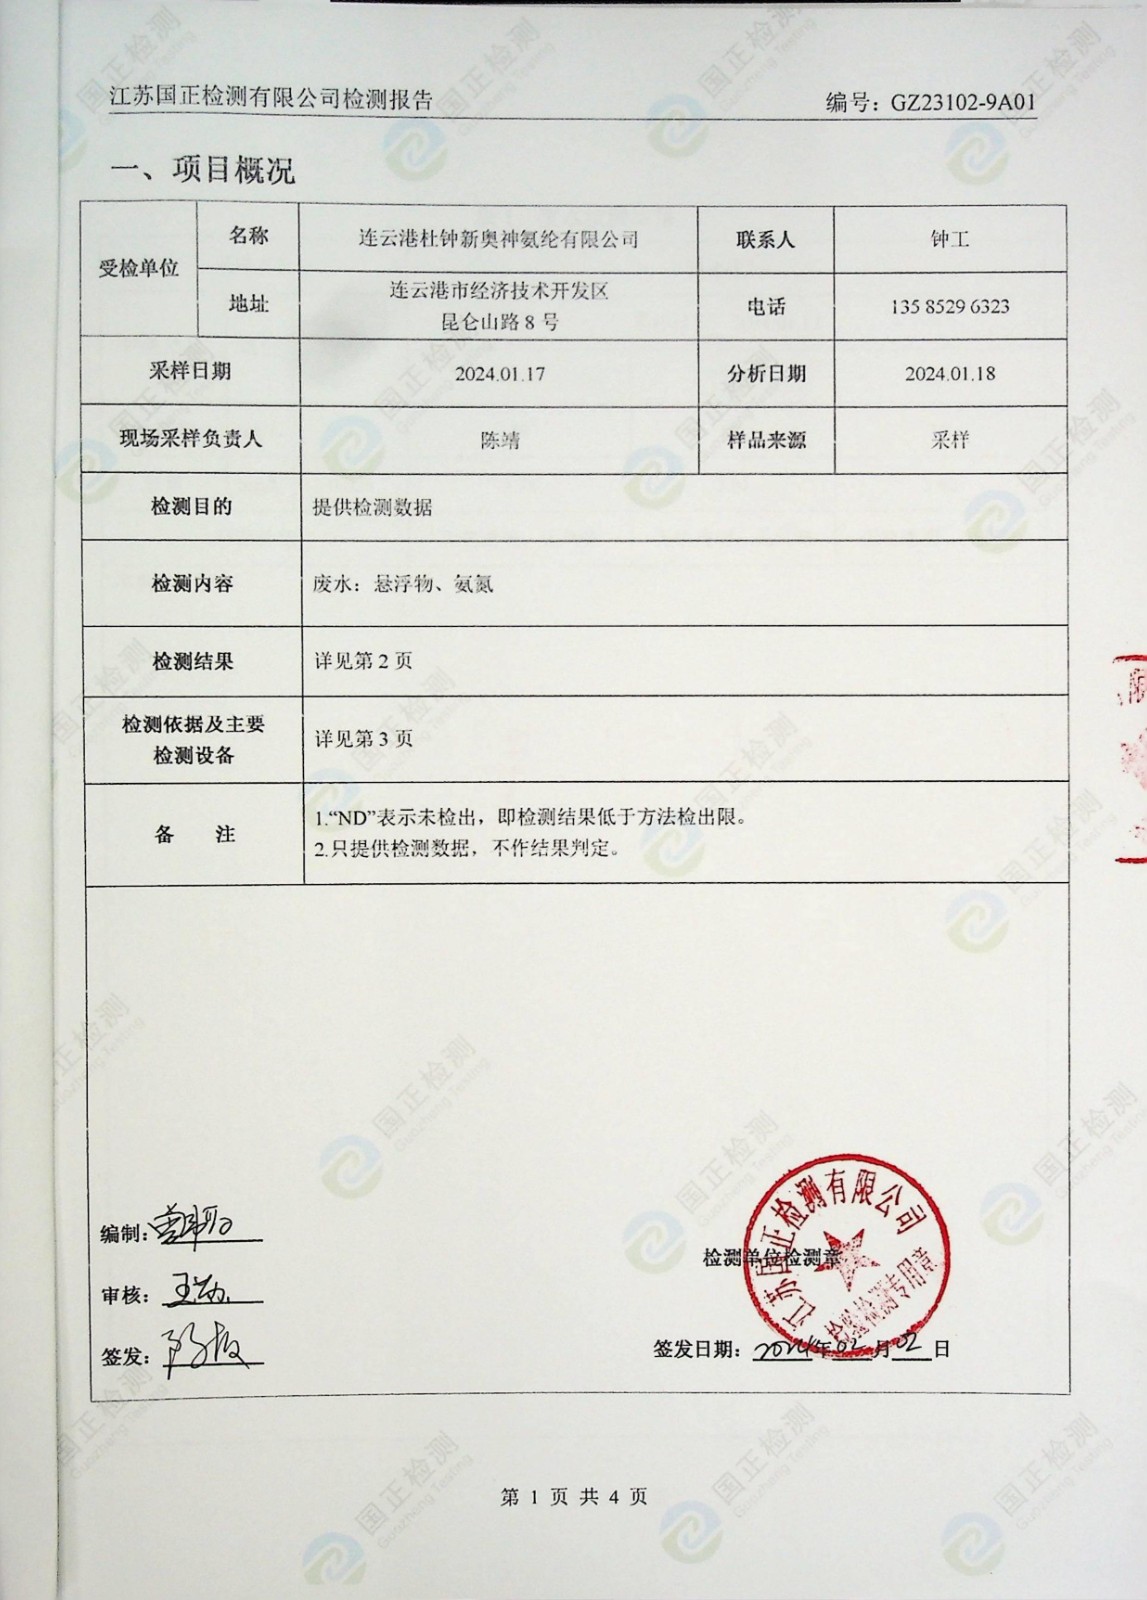 江苏国正检测有限公司检测报告 编号：GZ23102-9A01
一、项目概况
受检单位 名称 连云港杜钟新奥神氨纶有限公司 联系人 钟工
地址 连云港市经济技术开发区
昆仑山路 8 号 电话 135 8529 6323
采样日期 2024.01.17 分析日期 2024.01.18
现场采样负责人 陈靖 样品来源 采样
检测目的 提供检测数据
检测内容 废水：悬浮物、氨氮
检测结果 详见第 2 页
检测依据及主要
检测设备 详见第 3 页
备 注 1.“ND”表示未检出，即检测结果低于方法检出限。
2.只提供检测数据，不作结果判定。
江苏国正检测有限公司
检验检测专用章
编制：
检测单位检测章
审核：
签发：
签发日期：2024年02月02日
第 1 页 共 4 页
国正检测
Guozheng Testing